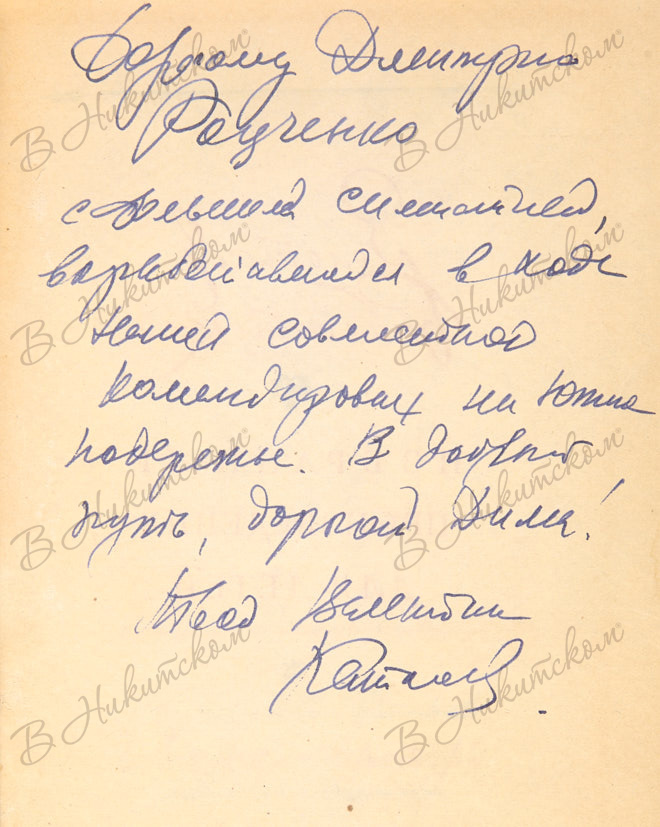 Дорогому Дмитрию
Родченко
с большой симпатией,
в ходе
нашей совместной
командировки на Южно
побережье. В добрый
путь, дорогой Дима!
Твой Валентин
Катаев
В Никитском